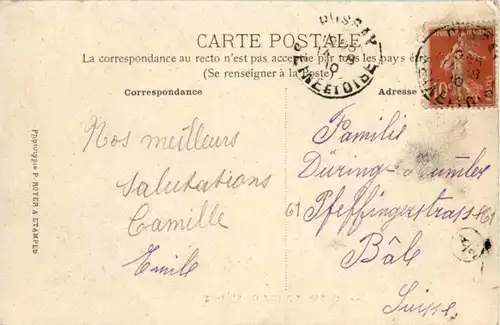 CARTE POSTALE
La correspondance au recto n'est pas acceptée par tous les pays
(Se renseigner à la Poste)
Correspondance
Adresse
Nos meilleurs
salutations
Camille
Emile
Familie
Düring-
61 Pfeffingerstrasse 61
Bâle
Suisse.
PUSSAY
SEINE ET OISE
10
Phototypie P. ROYER A ETAMPES